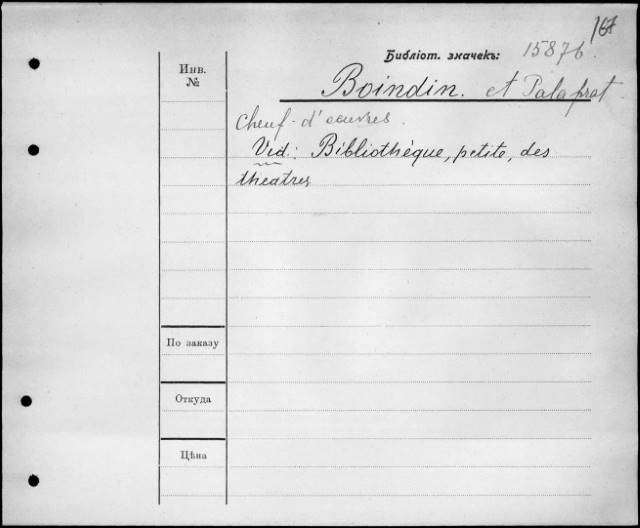 167
Библіот. значекъ: 15876.
Инв. №
Boindin. et Palaprat.
Cheuf-d'oeuvres.
Vid.: Bibliothèque, petite, des
theatres
По заказу
Откуда
Цѣна